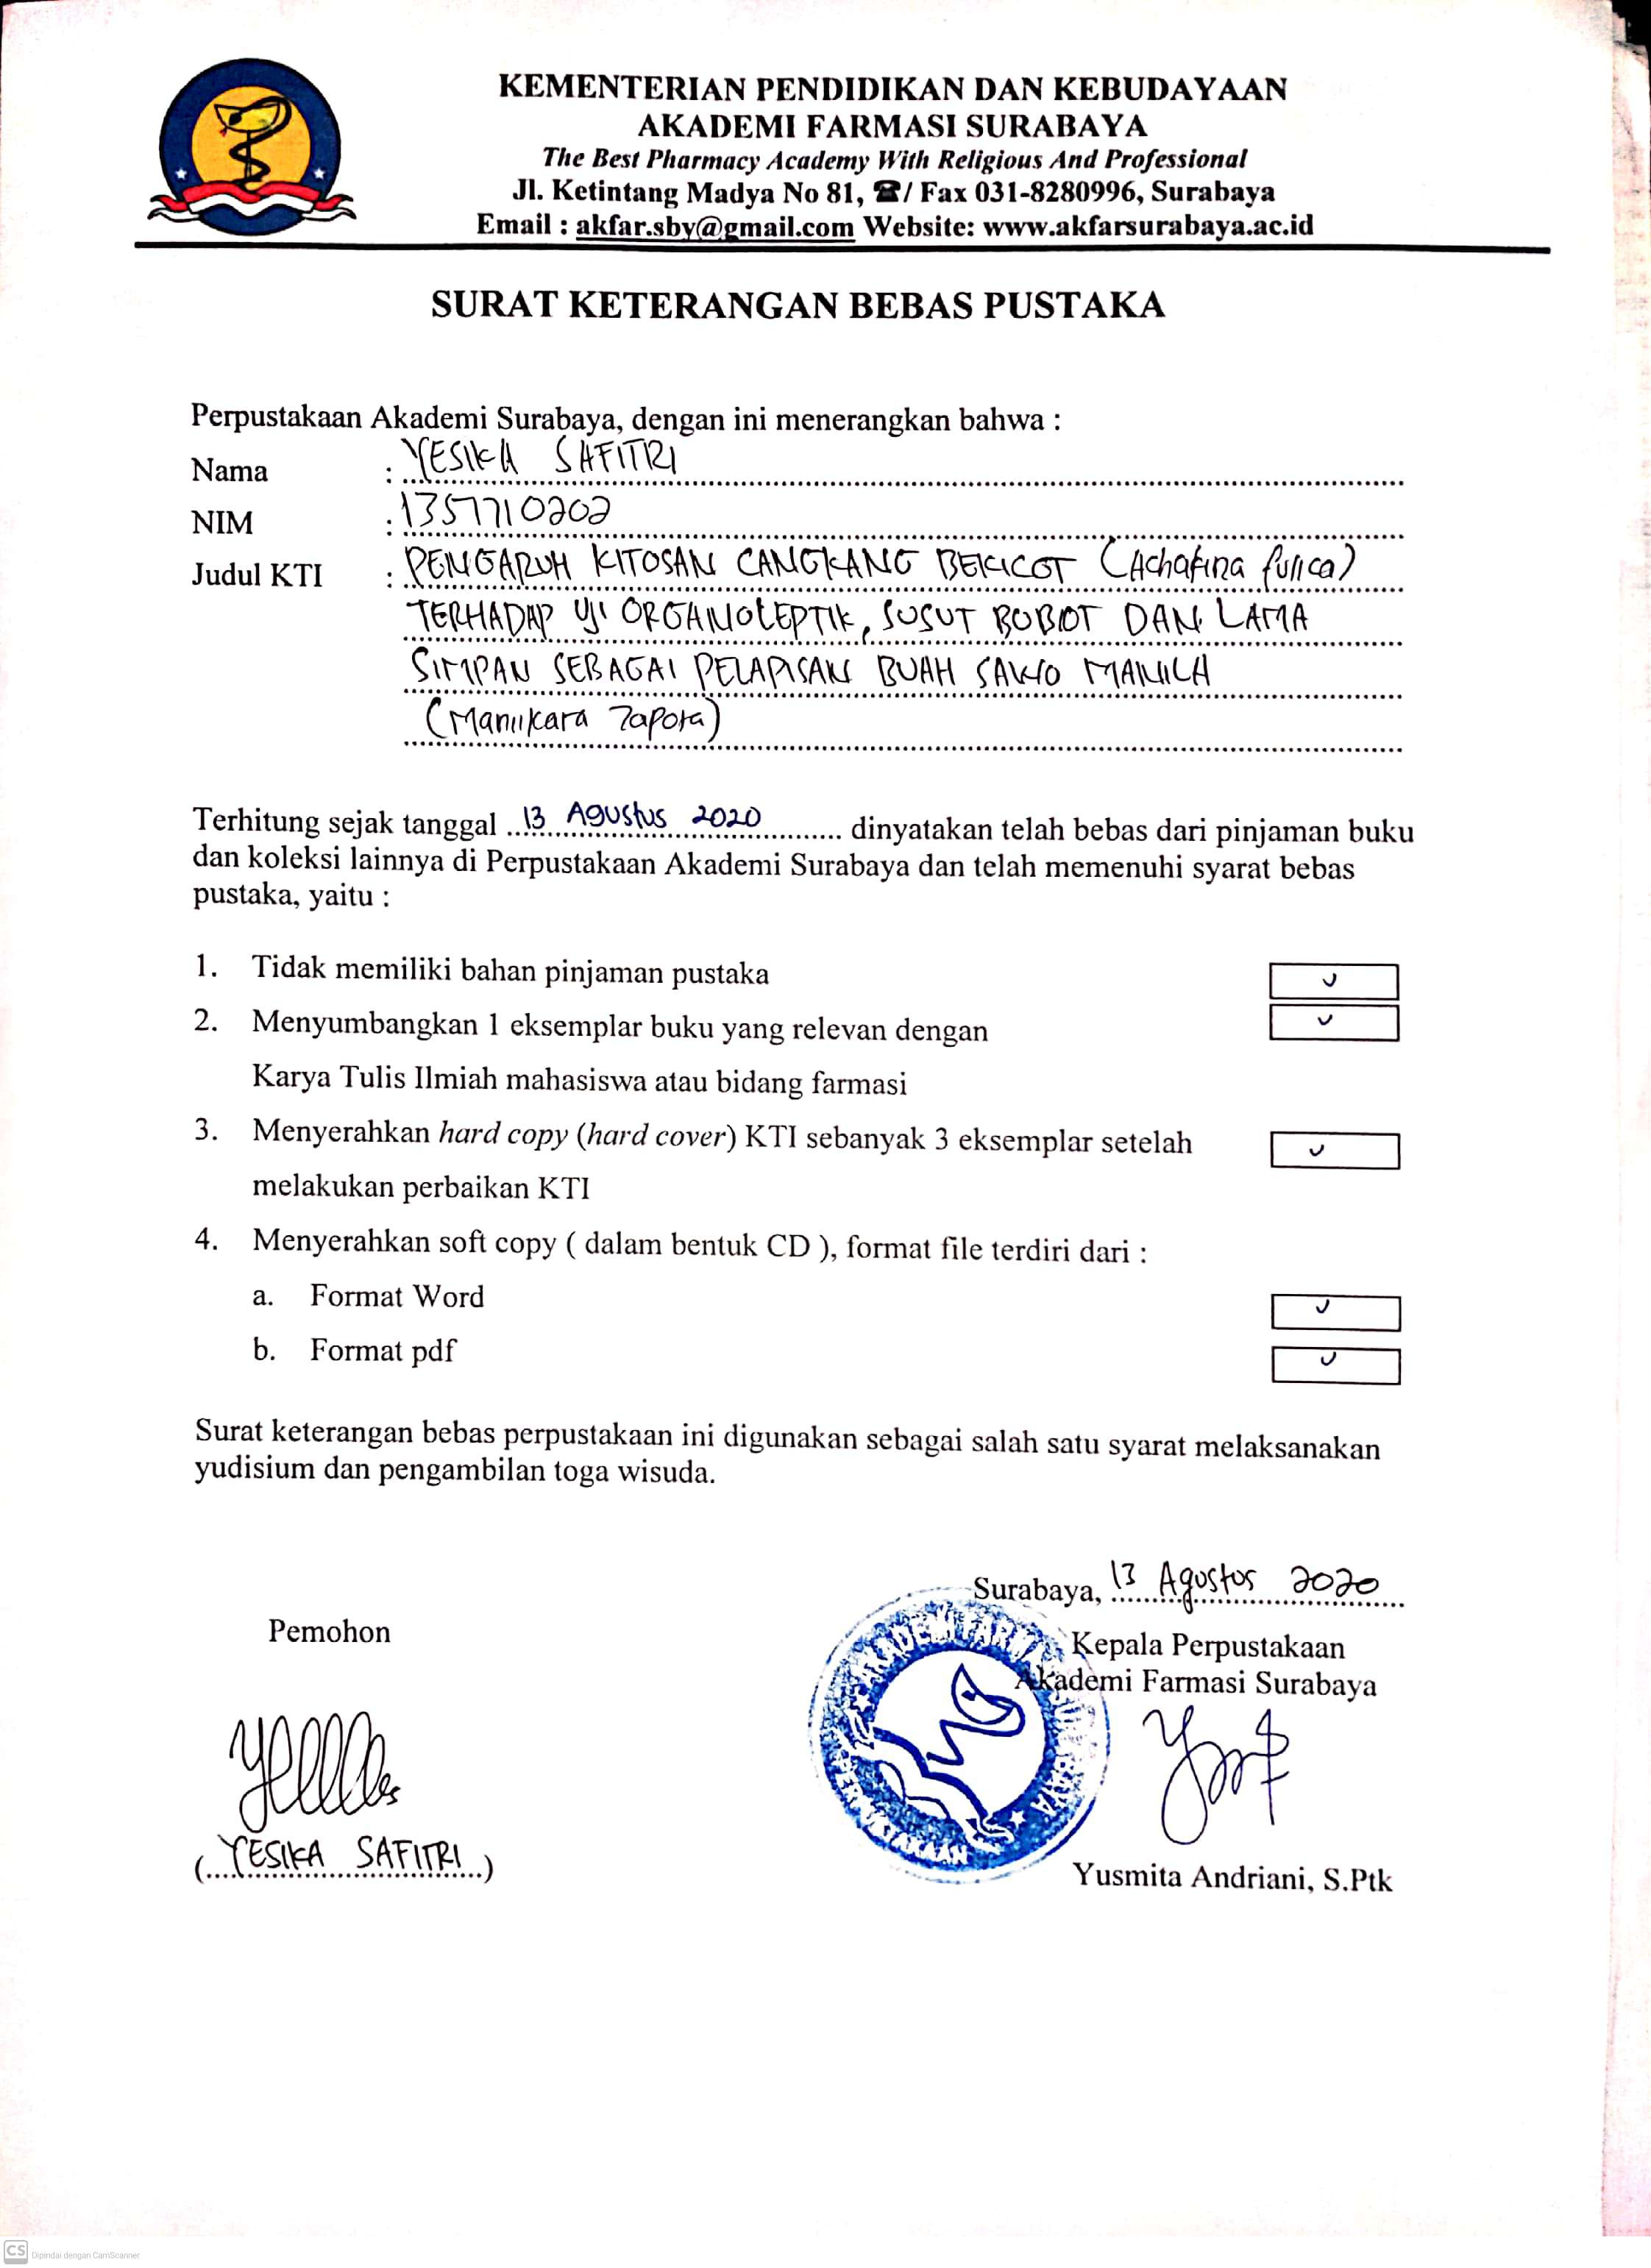 KEMENTERIAN PENDIDIKAN DAN KEBUDAYAAN
AKADEMI FARMASI SURABAYA
The Best Pharmacy Academy With Religious And Professional
Jl. Ketintang Madya No 81, ☎/ Fax 031-8280996, Surabaya
Email : akfar.sby@gmail.com Website: www.akfarsurabaya.ac.id
SURAT KETERANGAN BEBAS PUSTAKA
Perpustakaan Akademi Surabaya, dengan ini menerangkan bahwa :
Nama : YESIKA SAFITRI
NIM : 1357710202
Judul KTI : PENGARUH KITOSAN CANGKANG BEKICOT (Achatina fulica)
TERHADAP UJI ORGANOLEPTIK, SUSUT BOBOT DAN LAMA
SIMPAN SEBAGAI PELAPISAN BUAH SAWO MANILA
(Manilkara Zapota)
Terhitung sejak tanggal 13 Agustus 2020 dinyatakan telah bebas dari pinjaman buku
dan koleksi lainnya di Perpustakaan Akademi Surabaya dan telah memenuhi syarat bebas
pustaka, yaitu :
1. Tidak memiliki bahan pinjaman pustaka
2. Menyumbangkan 1 eksemplar buku yang relevan dengan
Karya Tulis Ilmiah mahasiswa atau bidang farmasi
3. Menyerahkan hard copy (hard cover) KTI sebanyak 3 eksemplar setelah
melakukan perbaikan KTI
4. Menyerahkan soft copy ( dalam bentuk CD ), format file terdiri dari :
a. Format Word
b. Format pdf
Surat keterangan bebas perpustakaan ini digunakan sebagai salah satu syarat melaksanakan
yudisium dan pengambilan toga wisuda.
Surabaya, 13 Agustus 2020
Pemohon
Kepala Perpustakaan
Akademi Farmasi Surabaya
AKADEMI FARMASI SURABAYA
PERPUSTAKAAN
(YESIKA SAFITRI)
Yusmita Andriani, S.Ptk
CS Dipindai dengan CamScanner